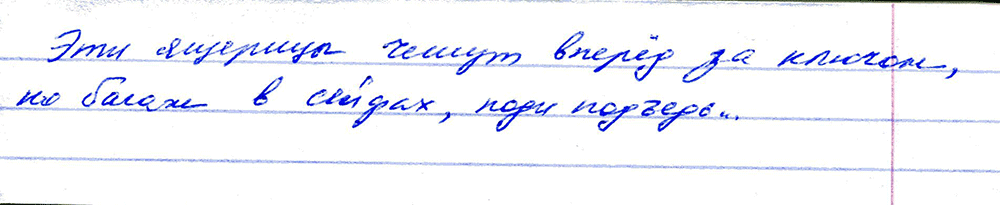 Эти ящерицы чешут вперёд за ключом,
но багаж в сейфах, поди подъедь...